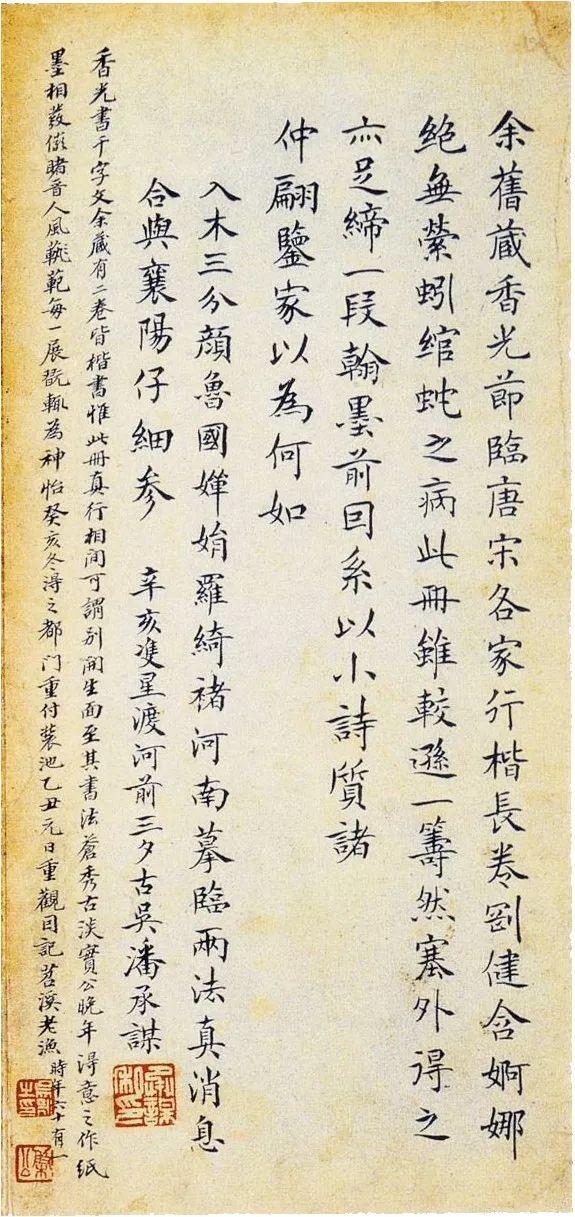 余舊藏香光節臨唐宋各家行楷長卷剛健含婀娜
絕無縈蚓綰虵之病此冊雖較遜一籌然塞外得之
亦足締一段翰墨前因系以小詩質諸
仲翩鑒家以為何如
入木三分顏魯國嬋娟羅綺褚河南摹臨兩法真消息
合與襄陽仔細參 辛亥雙星渡河前三夕古吳潘承謀
香光書千字文余藏有二卷皆楷書惟此冊真行相間可謂別開生面至其書法蒼秀古淡實公晚年得意之作紙
墨相發儼睹晉人風軌範每一展翫輒為神怡癸亥冬得之都門重付裝池乙丑元日重觀因記苕溪老漁時年六十有一